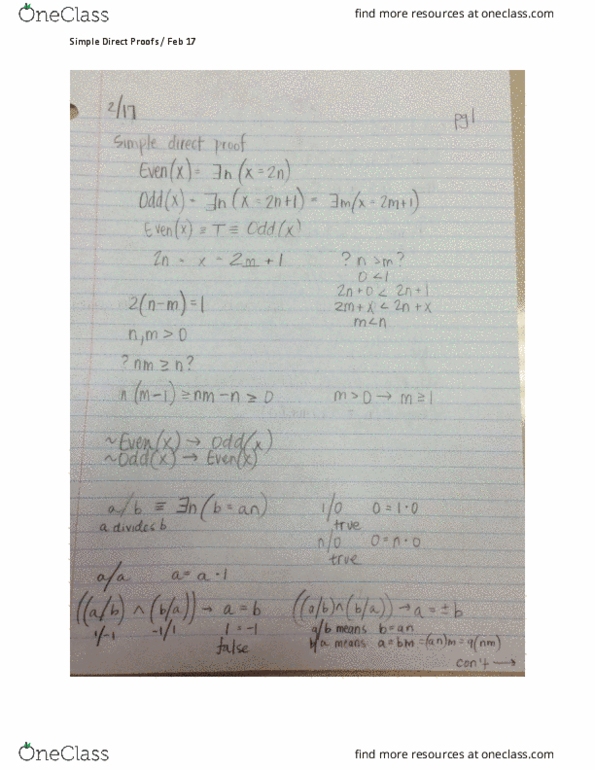 OneClass
find more resources at oneclass.com
Simple Direct Proofs / Feb 17
2/17
pg1
Simple direct proof
Even(x) = ∃n (x = 2n)
Odd(x) = ∃n (x = 2n+1) = ∃m(x = 2m+1)
Even(x) ≡ T ≡ Odd(x)
2n = x = 2m + 1
? n > m ?
0 < 1
2n+0 < 2n+1
2(n-m) = 1
2m+x < 2n+x
m<n
n,m > 0
? nm ≥ n?
n (m-1) ≥ nm-n ≥ 0
m > 0 → m ≥ 1
~Even(x) → Odd(x)
~Odd(x) → Even(x)
a/b ≡ ∃n (b = an)
1/0 0 = 1·0
a divides b
true
n/0 0 = n·0
true
a/a a = a·1
((a/b) ∧ (b/a)) → a = b
((a/b)∧(b/a)) → a = ± b
1/-1 -1/1 1 = -1
a/b means b = an
false
b/a means a = bm = (an)m = a(nm)
con't →
OneClass
find more resources at oneclass.com